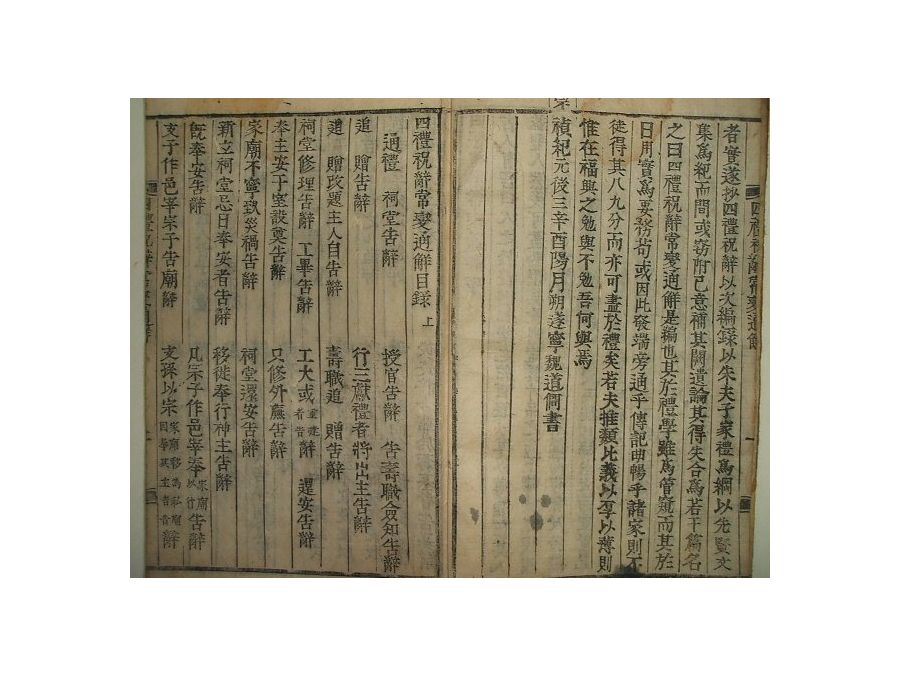 者實遂抄四禮祝辭以次編錄以朱夫子家禮爲綱以先賢文
集爲紀而間或窃附己意補其闕遺論其得失合爲若干篇名
之曰四禮祝辭常變通解是編也其於禮學雖爲管窺而其於
日用實爲要務苟或因此發端旁通乎傳記曲暢乎諸家則不
徒得其八九分而亦可盡於禮矣若夫推類比義以厚以薄則
惟在福與之勉與不勉吾何與焉
禎紀元後三辛酉陽月朔遂寧魏道僴書
四禮祝辭常變通解
四禮祝辭常變通解目錄 上
通禮 祠堂告辭 授官告辭 告壽職僉知告辭
追 贈告辭 行三獻禮者將出主告辭
追 贈改題主人自告辭 壽職追 贈告辭
祠堂修理告辭 工畢告辭 工大或重建者告辭 還安告辭
奉主安于室設奠告辭 只修外廡告辭
家廟不寧致災禍告辭 祠堂還安告辭
新立祠堂忌日奉安者告辭 移徙奉行神主告辭
旣奉安告辭 凡宗子作邑宰奉家廟以行告辭
支子作邑宰宗子告廟辭 支孫以宗